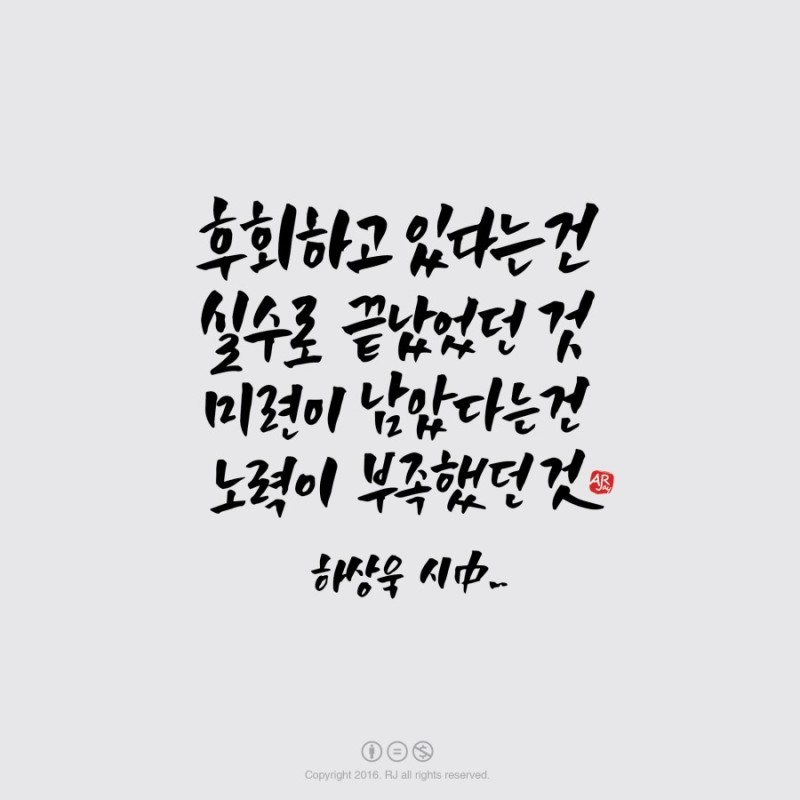 후회하고 있다는건
실수로 끝났었던 것
미련이 남았다는건
노력이 부족했던 것
하상욱 시中..
Copyright 2016. RJ all rights reserved.